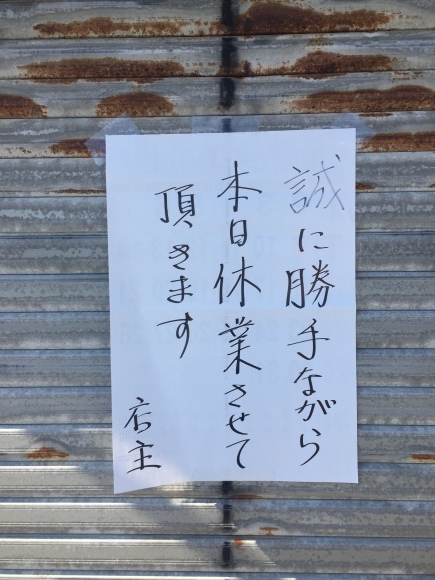 誠に勝手ながら
本日休業させて
頂きます
店主